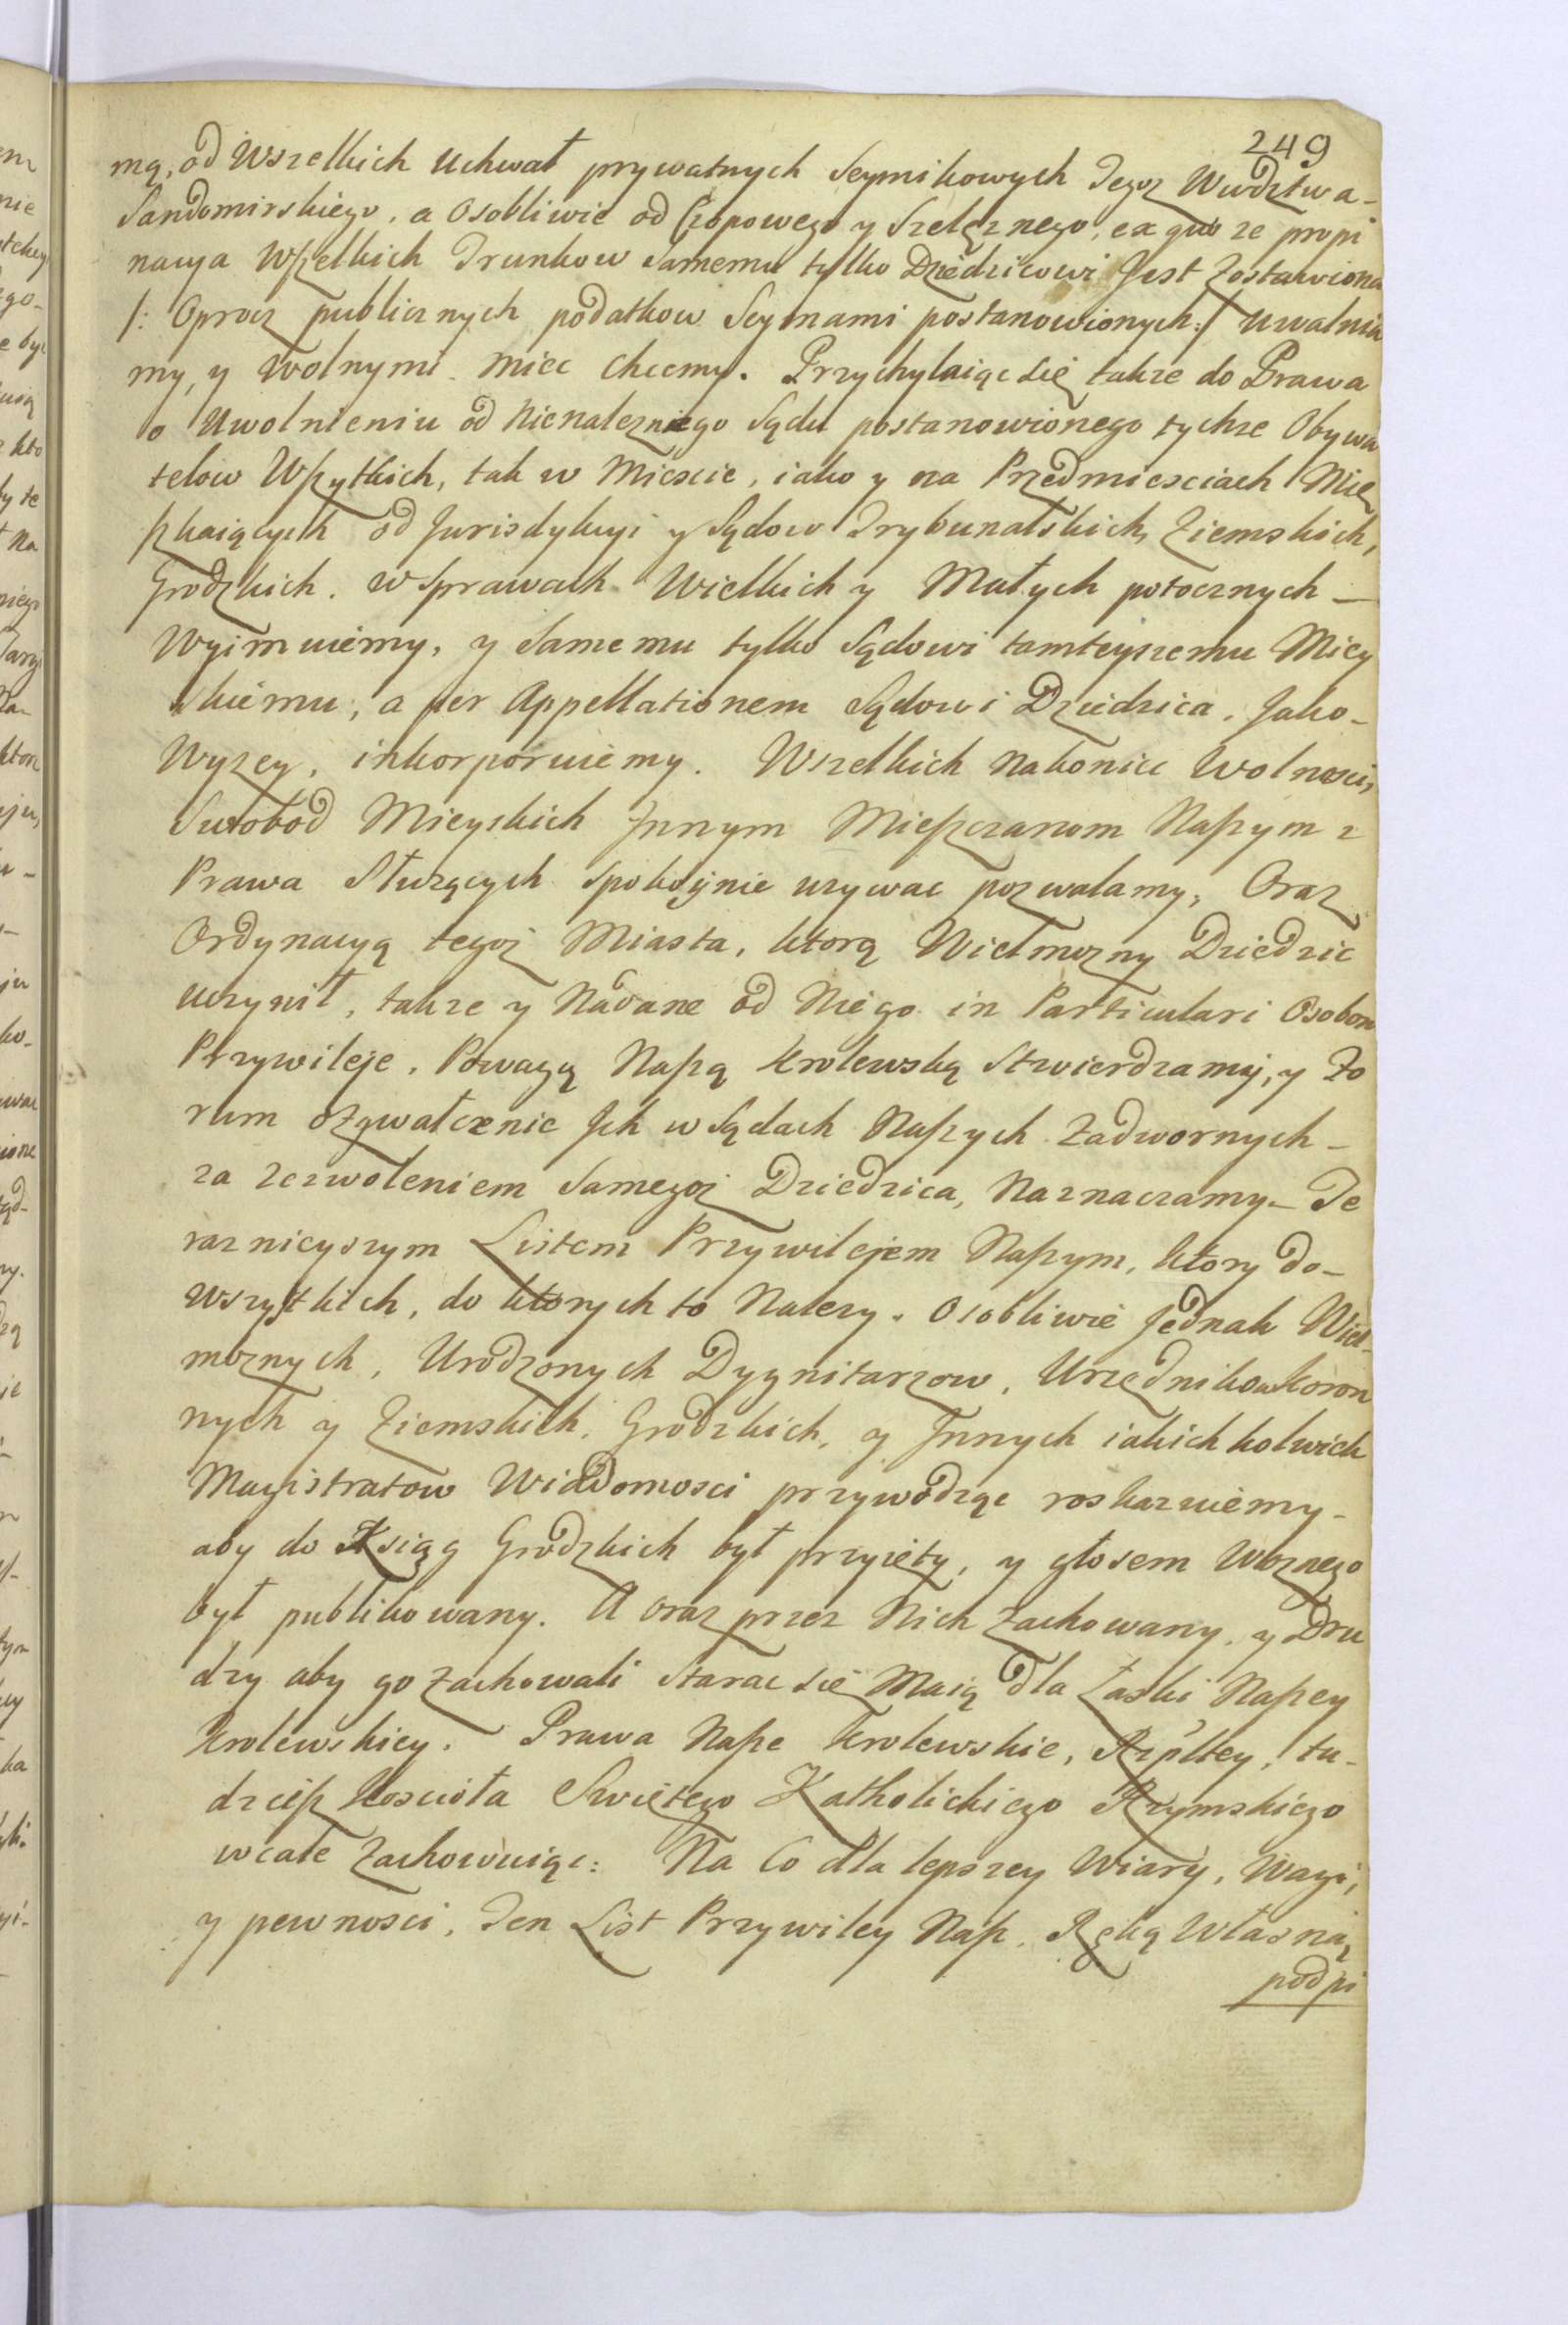 249
mą, od Wszelkich Uchwał prywatnych Seymikowych Tegoz Wwdztwa-
Sandomirskiego, a Osobliwie od Czopowego y Szelęznego, ex quo ze propi
nacya Wßelkich Trunkow Samemu tylko Dziedzicowi Jest Zostawiona
/: Oprocz publicznych podatkow Seymami postanowionych:/ uwalnia
my, y Wolnymi miec chcemy. Przychylaiąc się takze do Prawa
o Uwolnieniu od Nienalezniego Sądu postanowionego tychze Obywa
telow Wßytkich, tak w Miescie, iako y na Przedmiesciach Mię
ßkaiących od Jurisdykcyi y Sądow Trybunalskich, Ziemskich,
Grodzkich. w Sprawach Wielkich y Małych potocznych —
Wyimuiemy, y Samemu tylko Sądowi tamteyszemu Miey
skiemu, a per Appellationem Sądowi Dziedzica, Jako-
Wyzey, inkorporuiemy. Wszelkich Nakoniec Wolnosci,
Swobod Mieyskich Jnnym Mießczanom Naßym z
Prawa Słuzących Spokoynie uzywac pozwalamy, Oraz
Ordynacyą tegoz Miasta, ktorą Wielmozny Dziedzic
uczynił, takze y Nadane od Niego in Particulari Osobom
Przywileje, Powagą Naßą Krolewską Stwierdzamy, y Fo
rum o zgwałcenie Jch w Sądach Naßych Zadwornych-
za zezwoleniem Samegoz Dziedzica, Naznaczamy- Te
raznieyszym Listem Przywilejem Naßym, ktory do-
wszystkich, do ktorych to Nalezy. Osobliwie Jednak Wiel-
moznych, Urodzonych Dygnitarzow, Urzędnikow Koron
nych y Ziemskich, Grodzkich, y Jnnych iakichkolwiek
Magistratow Wiadomosci przywodząc roskazuiemy-
aby do Ksiąg Grodzkich był przyięty, y głosem Woznego
był publikowany. A oraz przez Nich Zachowany, y Dru
dzy aby go Zachowali starac się Maią dla Łaski Naßey
Krolewskiey. Prawa Naße Krolewskie, Rzpltey, tu-
dzieß Kosciota Swiętego Katholickiego Rzymskiego
wcale Zachowuiąc: Na Co dla lepszey Wiary, Wagi,
y pewnosci, Ten List Przywiley Naß, Ręką Własną
podpi